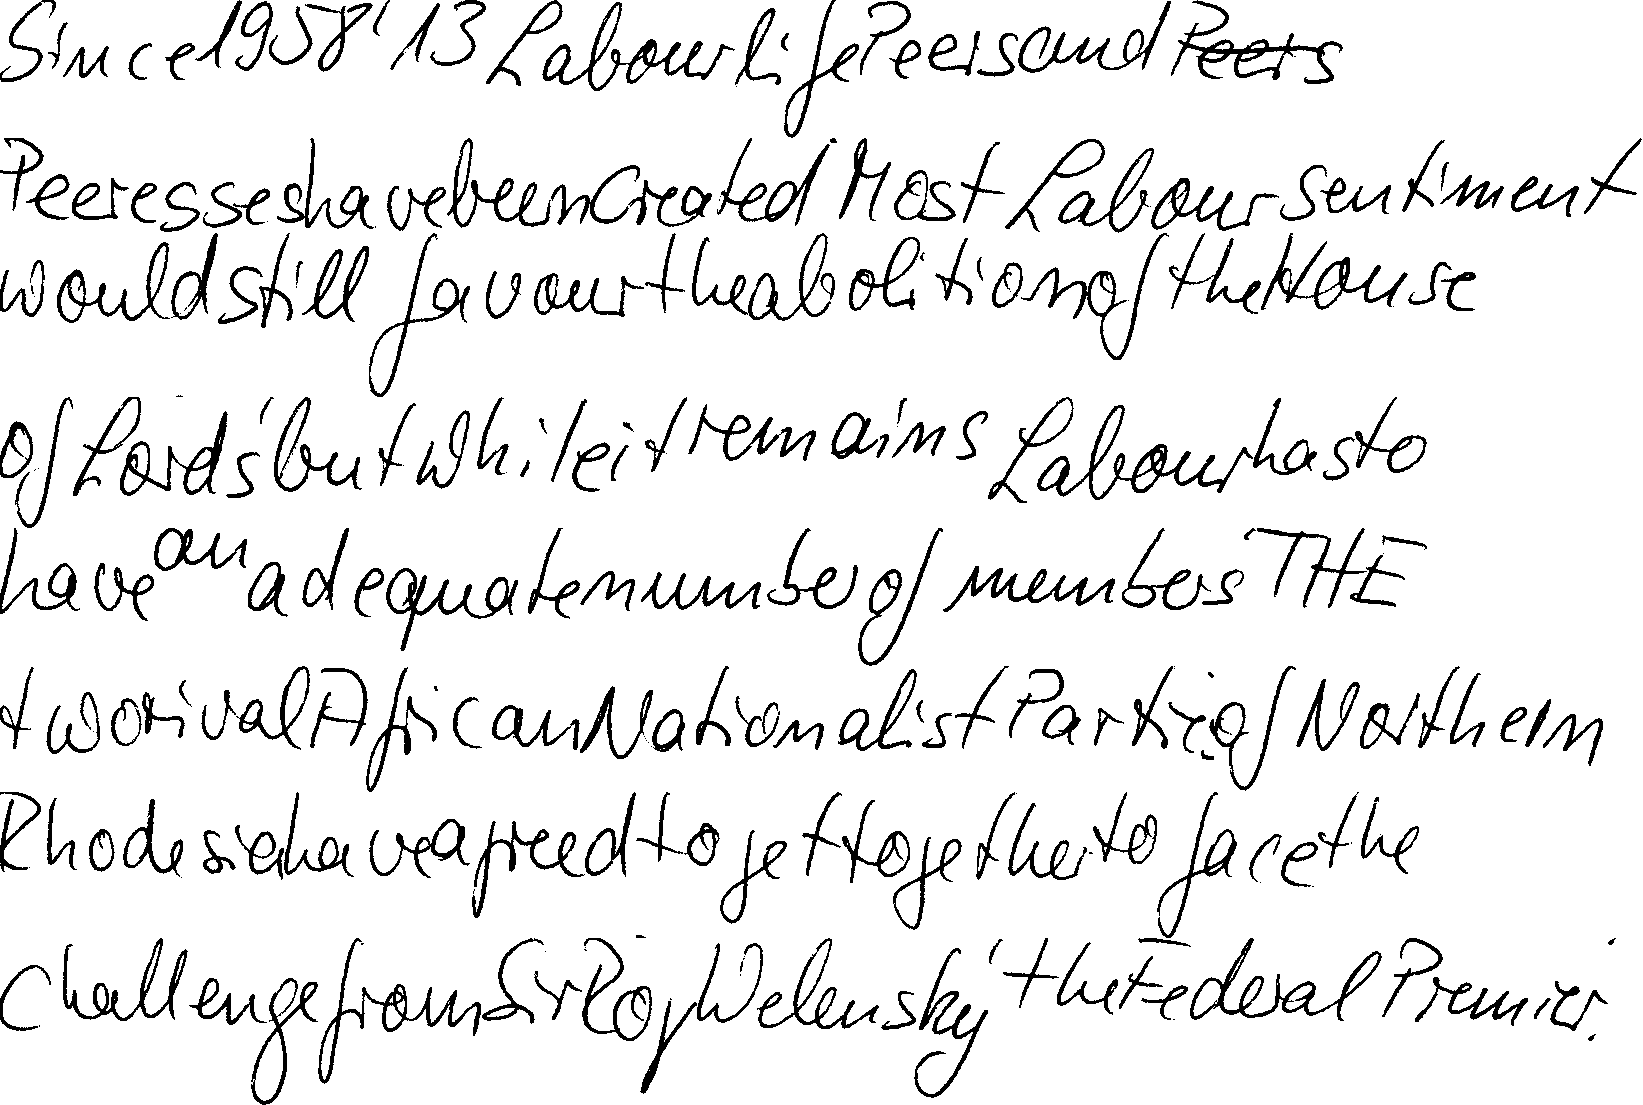 Since 1958' 13 Labour life Peers and Peers
Peeresses have been created Most Labour sentiment
would still favour the abolition of the House
of Lords' but while it remains Labour has to
have an adequate number of members THE
two rival African Nationalist Partie of Northern
Rhodesia have agreed to get together to face the
challenge from Sir Roy Welensky' the Federal Premier.